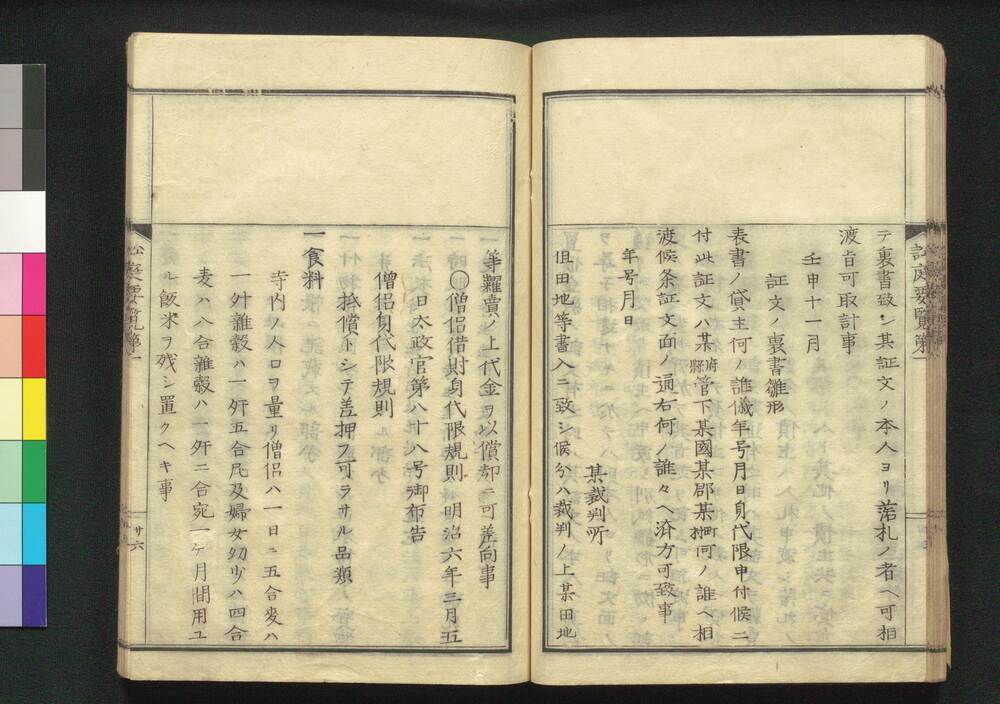 テ裏書致シ其証文ノ本人ヨリ落札ノ者ヘ可相
渡旨可取計事
壬申十一月
証文ノ裏書雛形
表書ノ貸主何ノ誰儀年号月日身代限申付候ニ
付此証文ハ某府縣管下某國某郡某何ノ誰ヘ相
渡候条証文面ノ通右何ノ誰々ヘ済方可致事
年号月日
某裁判所
但田地等書入ニ致シ候分ハ裁判ノ上某田地
等糶賣ノ上代金ヲ以償却ニ可差向事
〇僧侶借財身代限規則 明治六年三月五
日太政官第八十八号御布告
僧侶身代限規則
一什物抵償トシテ差押フ可ラサル品類
一食料
寺内ノ人口ヲ量リ僧侶ハ一日ニ五合麦ハ
一升雜穀ハ一升五合凡及婦女幼少ハ四合
麦ハ八合雜穀ハ一升二合宛一ケ月間用ユ
ル飯米ヲ残シ置クヘキ事
廿六